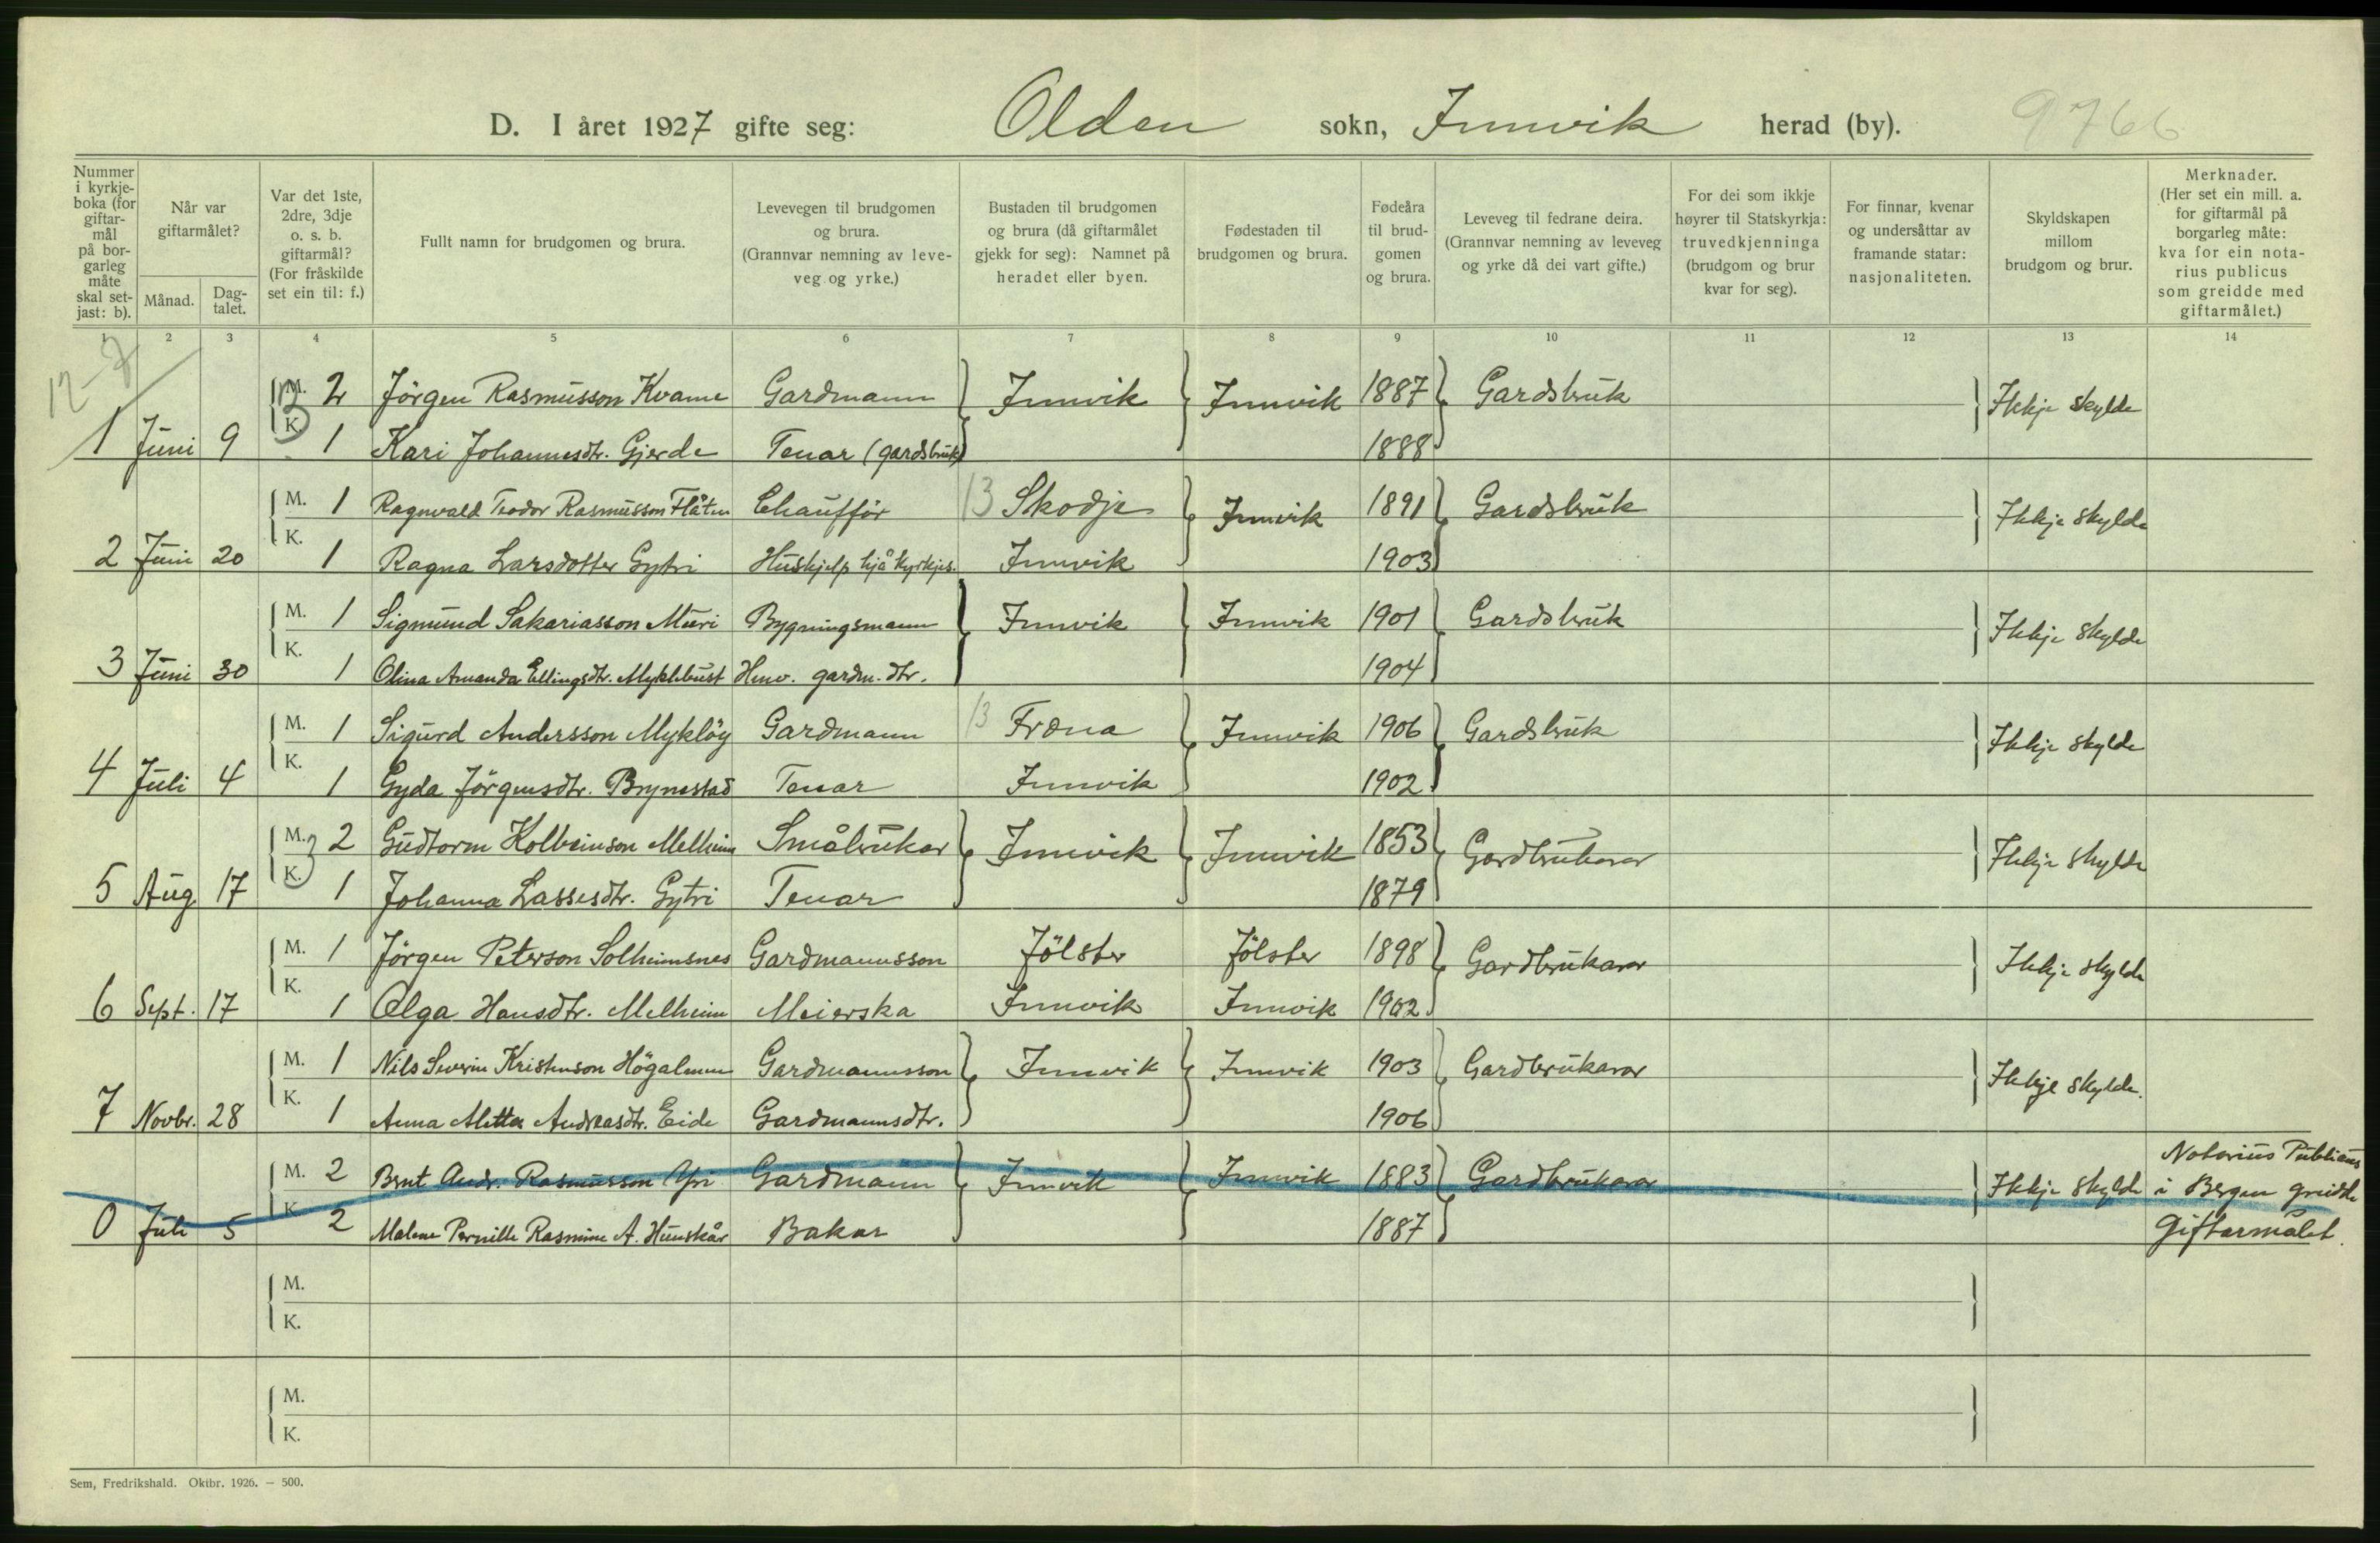 D. I året 1927 gifte seg: Olden sokn, Innvik herad (by). 9766
Nummer i kyrkje-boka (for giftar-mål på bor-garleg måte skal set-jast: b).
Når var giftarmålet?
Månad.
Dag-talet.
Var det 1ste, 2dre, 3dje o. s. b. giftarmål? (For fråskilde set ein til: f.)
Fullt namn for brudgomen og brura.
Levevegen til brudgomen og brura. (Grannvar nemning av leve-veg og yrke.)
Bustaden til brudgomen og brura (då giftarmålet gjekk for seg): Namnet på heradet eller byen.
Fødestaden til brudgomen og brura.
Fødeåra til brud-gomen og brura.
Leveveg til fedrane deira. (Grannvar nemning av leveveg og yrke då dei vart gifte.)
For dei som ikkje høyrer til Statskyrkja: truvedkjenninga (brudgom og brur kvar for seg).
For finnar, kvenar og undersåttar av framande statar: nasjonaliteten.
Skyldskapen millom brudgom og brur.
Merknader. (Her set ein mill. a. for giftarmål på borgarleg måte: kva for ein nota-rius publicus som greidde med giftarmålet.)
1 2 3 4 5 6 7 8 9 10 11 12 13 14
12-7
M. 2 Jörgen Rasmusson Kvame Gardmann Innvik Innvik 1887 Gardsbruk Ikkje skylde
1 Juni 9 K. 1 Kari Johannesdtr. Gjerde Tenar (gardsbruk) 1888
M. 1 Ragnvald Teodor Rasmusson Flåten Chaufför 13 Skodje Innvik 1891 Gardsbruk Ikkje skylde
2 Juni 20 K. 1 Ragna Larsdotter Gytri Huskjelp hjå kyrkjes. Innvik 1903
M. 1 Sigmund Sakariasson Muri Bygningsmann Innvik Innvik 1901 Gardsbruk Ikkje skylde
3 Juni 30 K. 1 Olina Amanda Ellingsdtr. Myklebust Hmv. gardm. dtr. 1904
M. 1 Sigurd Andersson Myklöy Gardmann 13 Fræna Innvik 1906 Gardsbruk Ikkje skylde
4 Juli 4 K. 1 Gyda Jörgensdtr. Brynestad Tenar Innvik 1902
M. 2 Gudtorm Kolbeinson Melheim Småbrukar Innvik Innvik 1853 Gardbrukarar Ikkje skylde
5 Aug 17 K. 1 Johanna Lassesdtr. Gytri Tenar 1879
M. 1 Jörgen Peterson Solheimsnes Gardmannsson Jölster Jölster 1898 Gardbrukarar Ikkje skylde
6 Sept. 17 K. 1 Olga Hansdtr. Melheim Meierska Innvik Innvik 1902
M. 1 Nils Severin Kristenson Högalmen Gardmannsson Innvik Innvik 1903 Gardbrukarar Ikkje skylde.
7 Novbr. 28 K. 1 Anna Metta Andreasdtr. Eide Gardmannsdtr. 1906
M. 2 Brnt Andr. Rasmusson Yri Gardmann Innvik Innvik 1883 Gardbrukarar Ikkje skylde Notarius Publicus i Bergen greidde
0 Juli 5 K. 2 Malene Pernille Rasmine A. Hunskår Bakar 1887 Giftarmålet.
M.
K.
M.
K.
Sem, Fredrikshald. Oktbr. 1926. – 500.